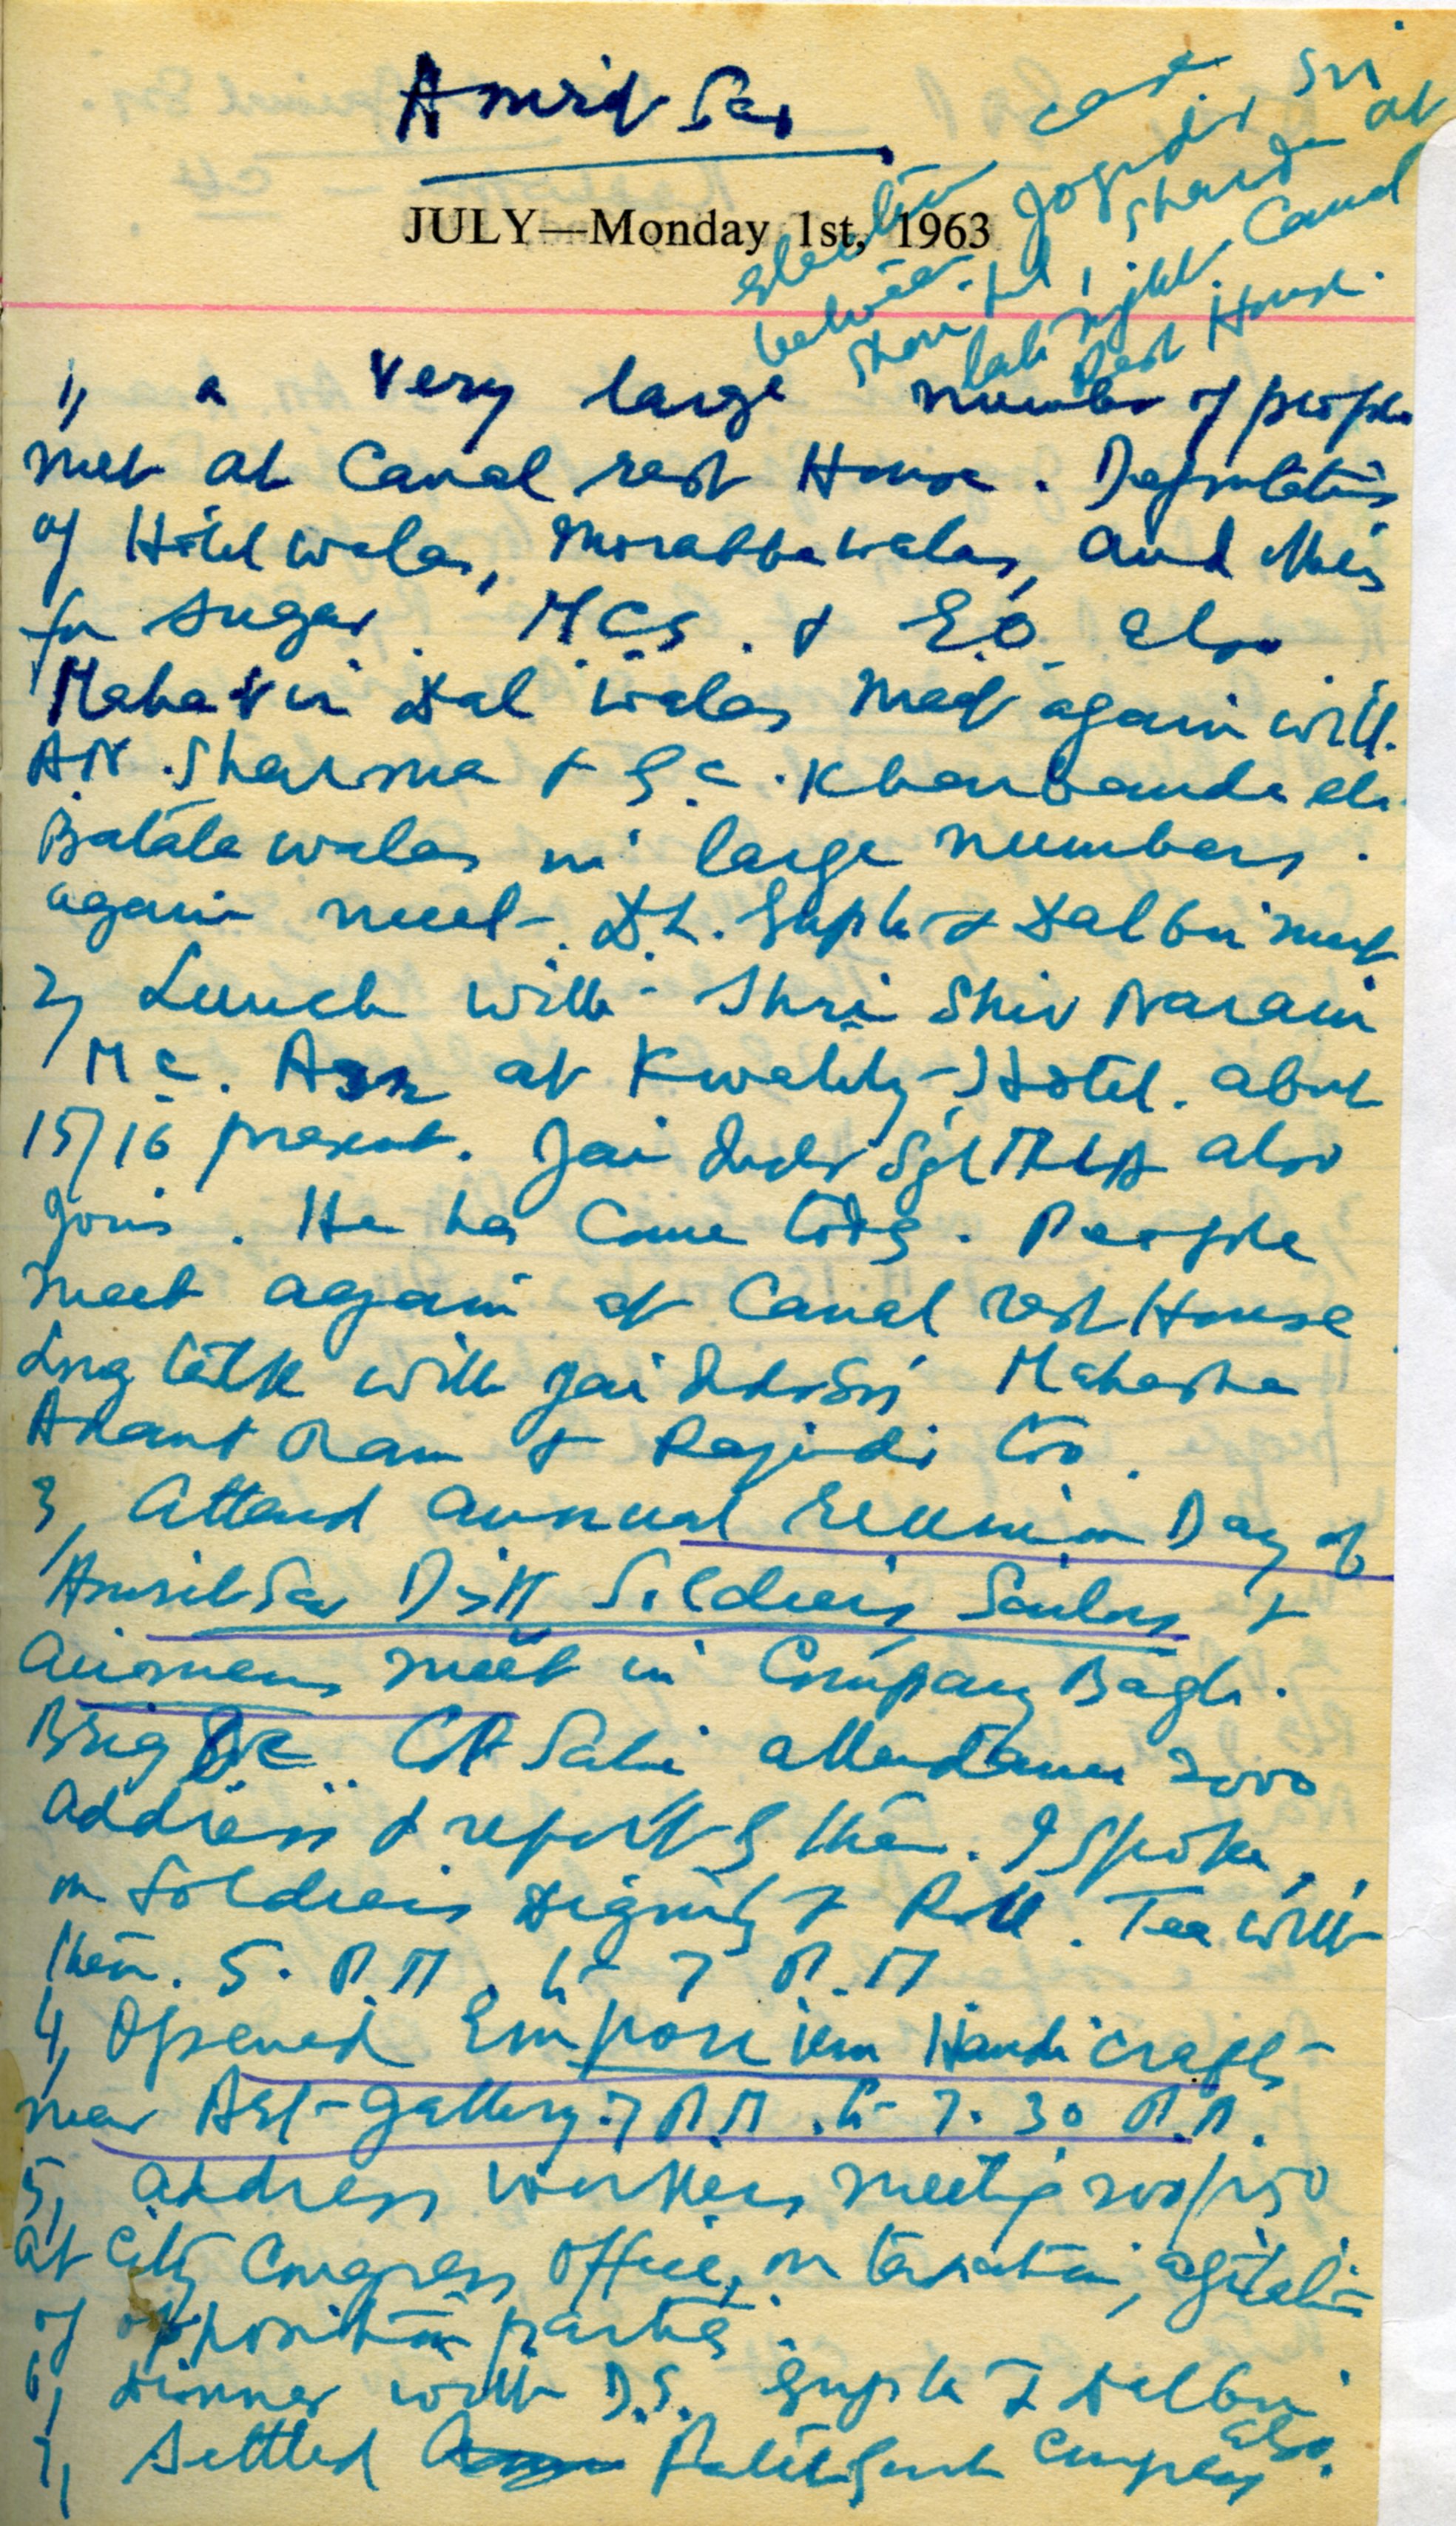 Amritsar
JULY—Monday 1st, 1963
election case
between Joginder Sri
Sharda at
late night. Canal
Rest House.
1, a very large number of people
met at Canal rest House. Deputations
of Hotel walas, Morabbawalas, and others
for sugar. MCs. & E.O. also
Mahavir Dal walas meet again with
A.N. Sharma & G.C. Kharbanda etc.
Batala walas in large numbers.
again meet. D.L. Gupta & Dalbir meet
2, Lunch with Shri Shiv Narain
M.C. ASR at Kwality Hotel. about
15/16 present. Jai Inder Sgh MLA also
joins. He has come today. People
meet again at Canal rest House
Long talk with Jai Inder Sri Mahasha
Anant Ram & Rajinder too.
3, Attend annual reunion Day of
Amritsar Distt Soldiers Sailors &
airomens meet in Company Bagh.
Brig attendance 2000
Address & report by them. I spoke
on Soldiers dignity & Role. Tea with
them. 5. P.M. to 7 P.M
4, Opened Emporium Handicrafts
near Art-Gallery. 7 P.M. to 7.30 P.M.
5, address workers meeting 200/250
at City Congress Office, on taxation, agitation
of opposition parties.
6, dinner with D.S. Gupta & Dalbir
also.
7, Settled Congress